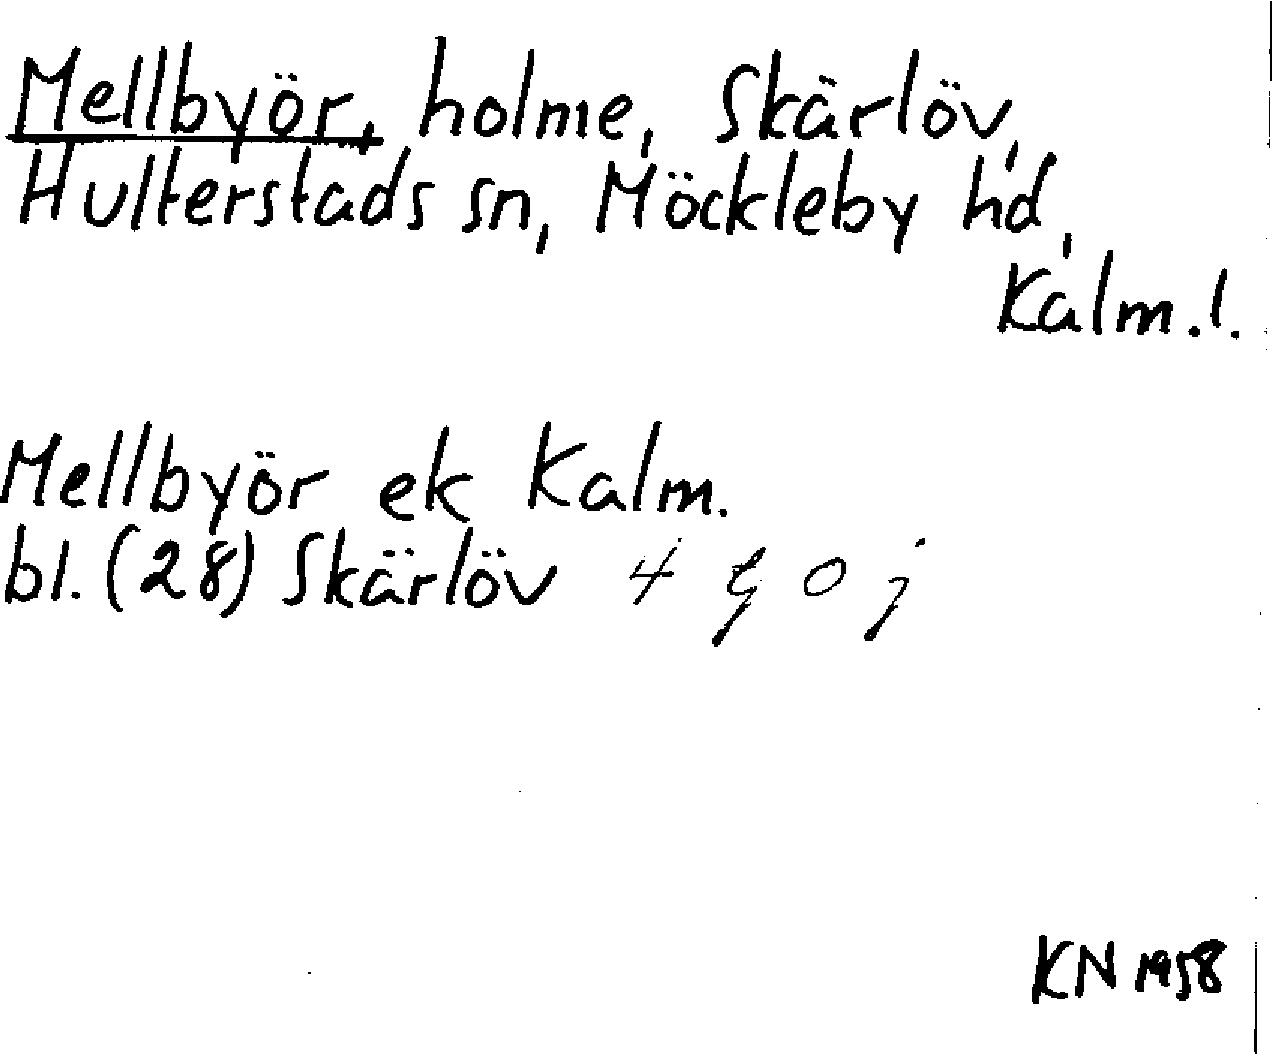 Mellbyör, holme, Skärlöv,
Hulterstads sn, Möckleby hd,
Kalm. l.
Mellbyör ek Kalm.
bl. (28) Skärlöv 4 g o j
KN 1958